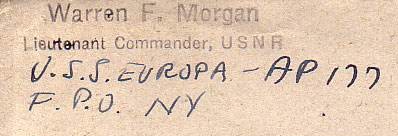 Warren F. Morgan
Lieutenant Commander, U S N R
U.S.S. EUROPA - AP 177
F.P.O. NY